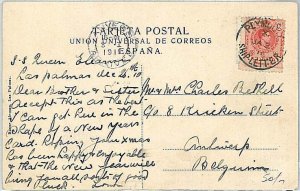 TARJETA POSTAL
UNION UNIVERSAL DE CORREOS
ESPAÑA.
S.S Queen Eleanor
Las Palmas Dec
Dear Brother & Sister
Accept this as the best
I can get here in the
shape of a New Years
Card. Hoping your Xmas
has been happy & enjoyable
& that the New Year will
bring you all sorts of good
luck
Mr & Mrs Charles Bethell
90. 8 Kruiken Street
Antwerp
Belguim